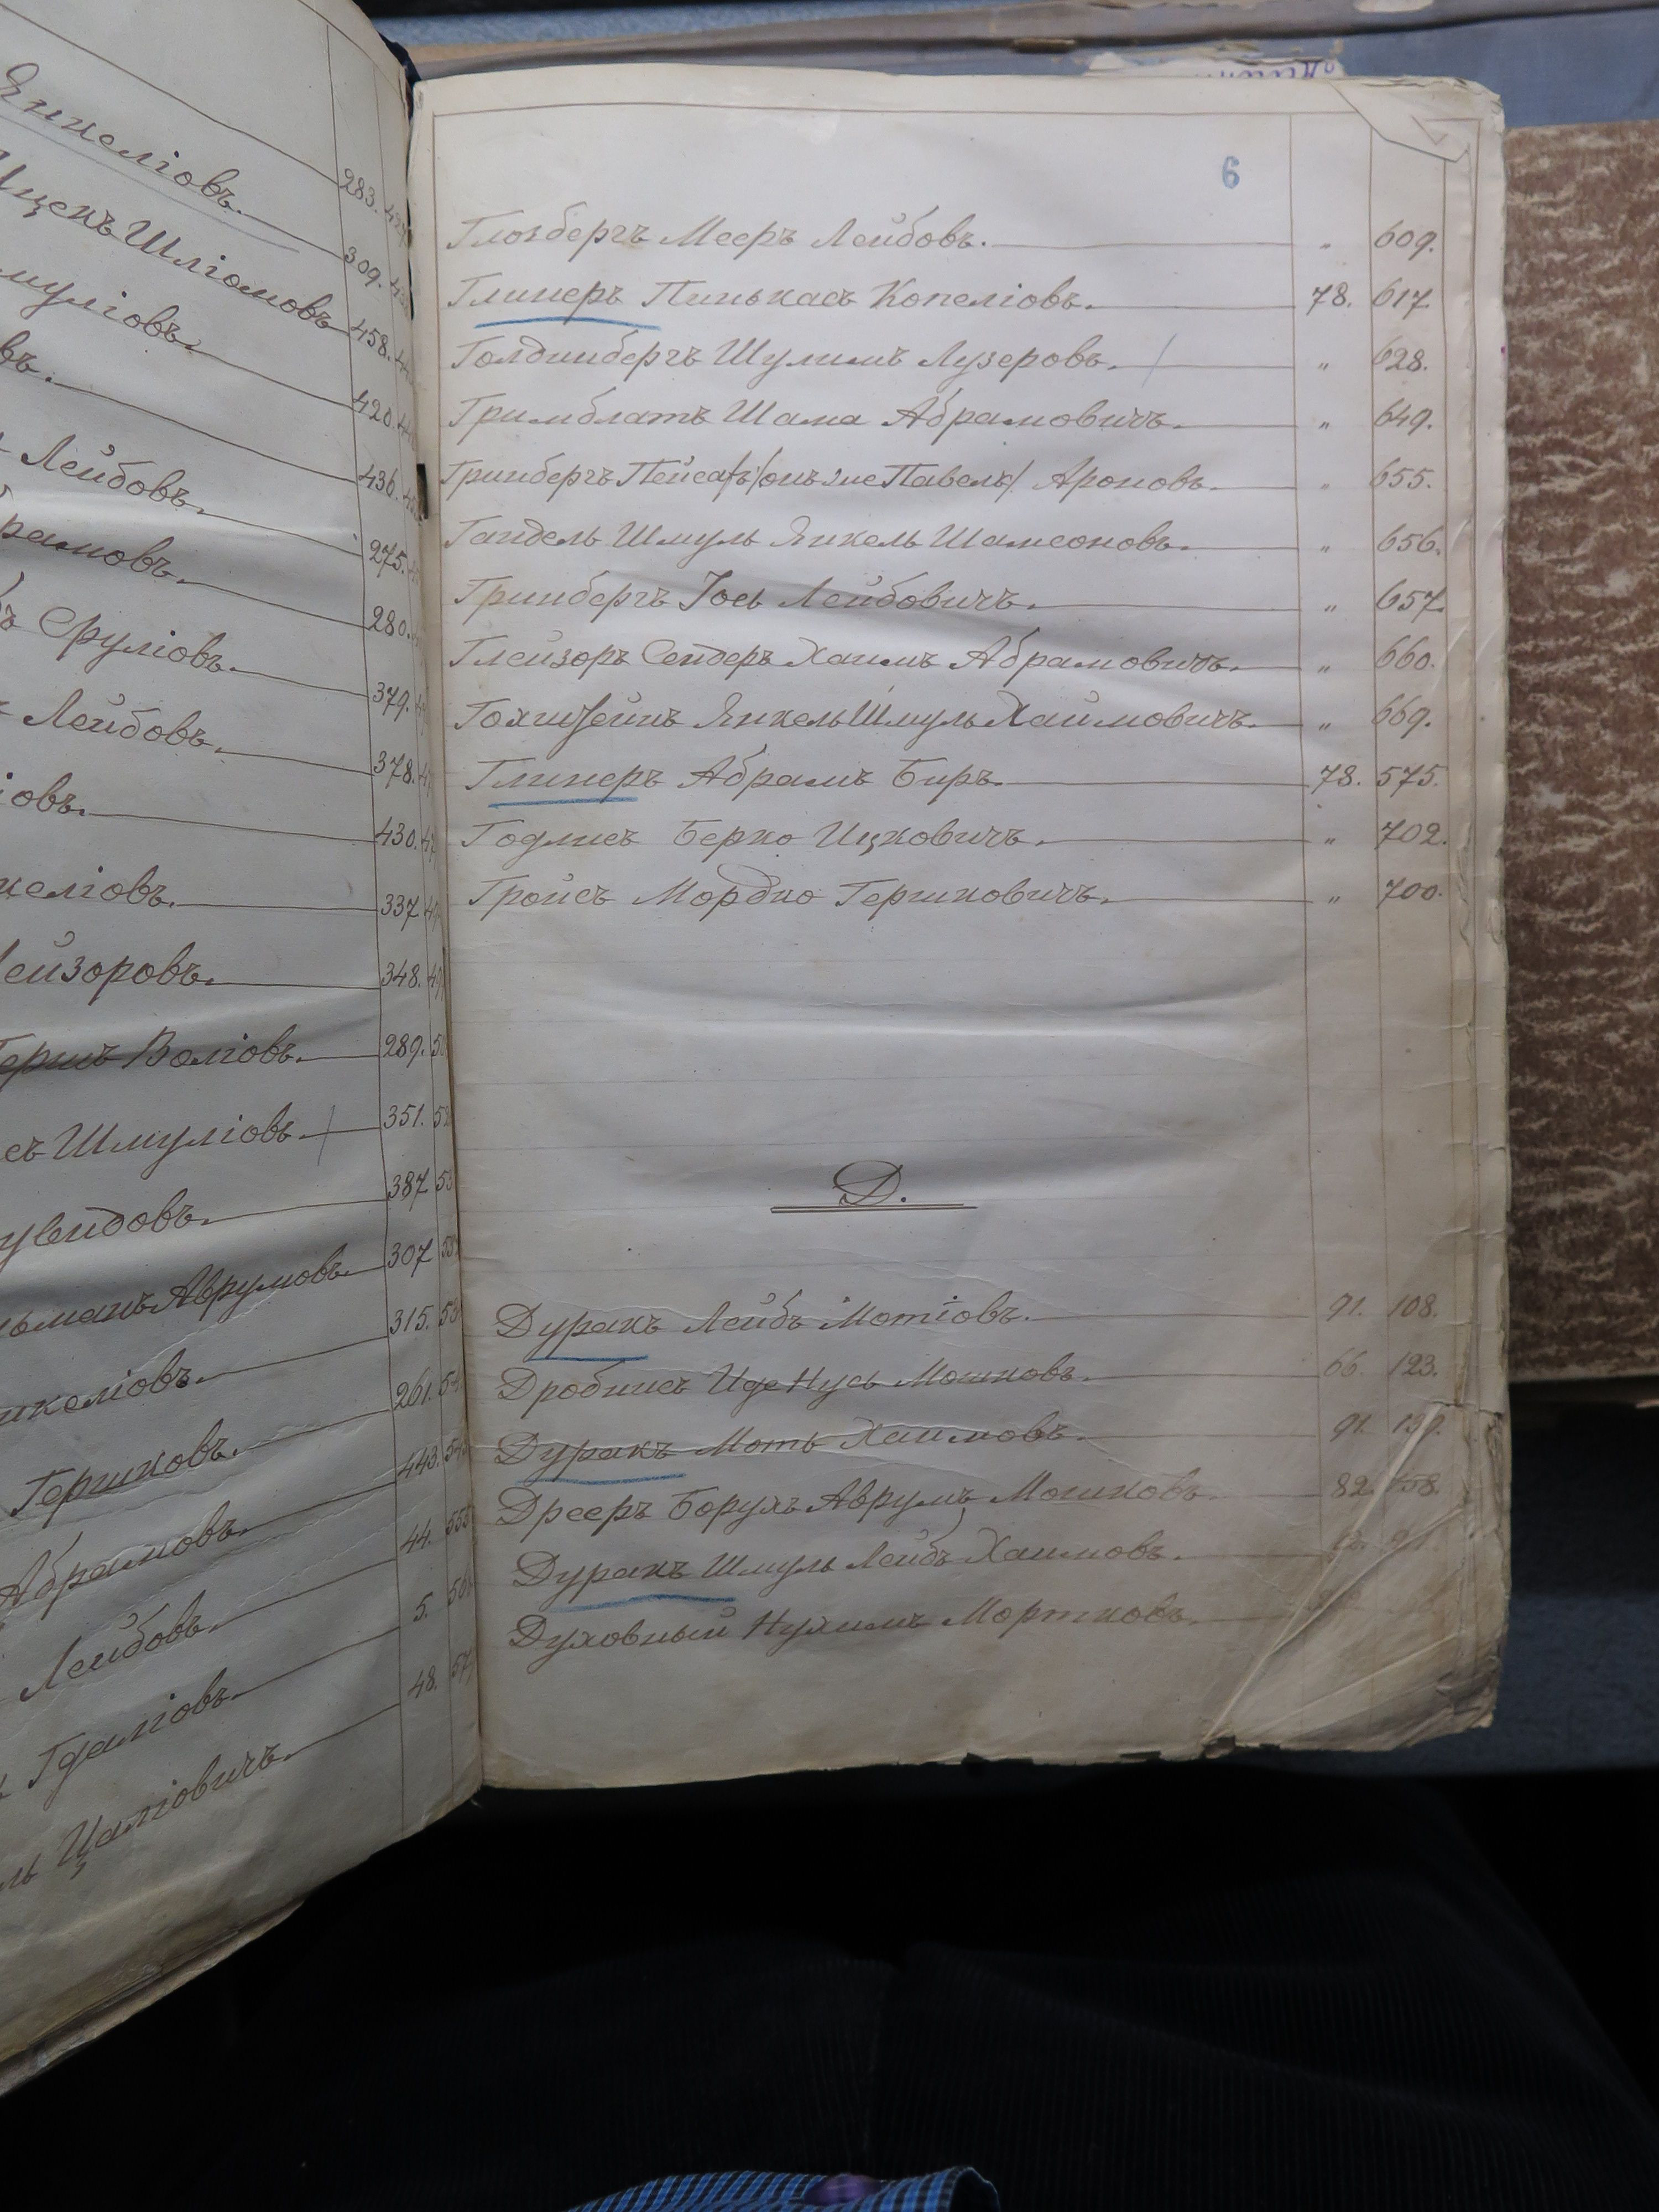 Янкеліовъ. 283.
309.
Ицекъ Шліомовъ 458.
муліовъ. 420.
въ. 436.
Лейбовъ. 275.
рамовъ. 280.
Сруліовъ. 379.
Лейбовъ. 378.
іовъ. 430.
келіовъ. 337
Лейзоровъ. 348.
Гершъ Воліовъ. 289.
съ Шмуліовъ. 351.
387
307
Аврумовъ 315.
нкеліовъ. 261.
Гершковъ. 443.
Абрамовъ. 44.
Лейбовъ. 5.
Гдаліовъ. 48.
ль Цаліовичъ.
6
Глозбергъ Мееръ Лейбовъ. " 609.
Глинеръ Пинькасъ Копеліовъ. 78. 617.
Голдинбергъ Шулимъ Лузеровъ. " 628.
Гримблатъ Шама Абрамовичъ. " 649.
Гринбергъ Пейсахъ /онъ же Павелъ/ Ароновъ. " 655.
Гандель Шмуль Янкель Шамсоновъ. " 656.
Гринбергъ Іось Лейбовичъ. " 657.
Глейзоръ Сендеръ Хаимъ Абрамовичъ. " 660.
Гохштейнъ Янкель Шмуль Хаимовичъ. " 669.
Глинеръ Абрамъ Беръ. 78. 575.
Годлисъ Берко Ицковичъ. " 702.
Гройсъ Мордко Гершковичъ. " 700.
Д.
Дуракъ Лейбъ Мотіовъ. 91. 108.
Дробнисъ Иде Нусь Мошковъ. 66. 123.
Дуракъ Моть Хаимовъ. 91.
Дрееръ Борухъ Аврумъ Мошковъ. 82. 158.
Дуракъ Шмуль Лейбъ Хаимовъ.
Духовный Нухимъ Мортковъ.